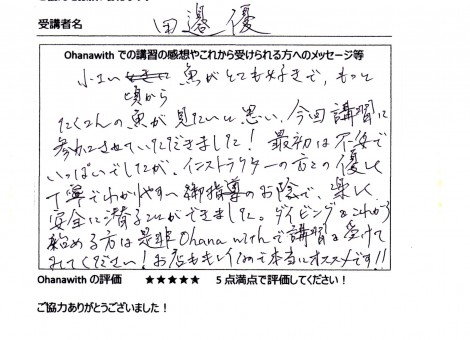 受講者名 田邉 優
Ohanawith での講習の感想やこれから受けられる方へのメッセージ等
小さい 頃から 魚がとても好きで、もっと
たくさんの魚が見たいと思い、今回講習に
参加させていただきました！ 最初は不安で
いっぱいでしたが、インストラクターの方との優しく
丁寧でわかりやすい御指導のお陰で、楽しく
安全に潜ることができました。ダイビングをこれから
始める方は是非Ohana withで講習を受けて
みてください！お店もキレイなので本当にオススメです!!
Ohanawith の評価 ★★★★★ 5 点満点で評価してください！
ご協力ありがとうございました！